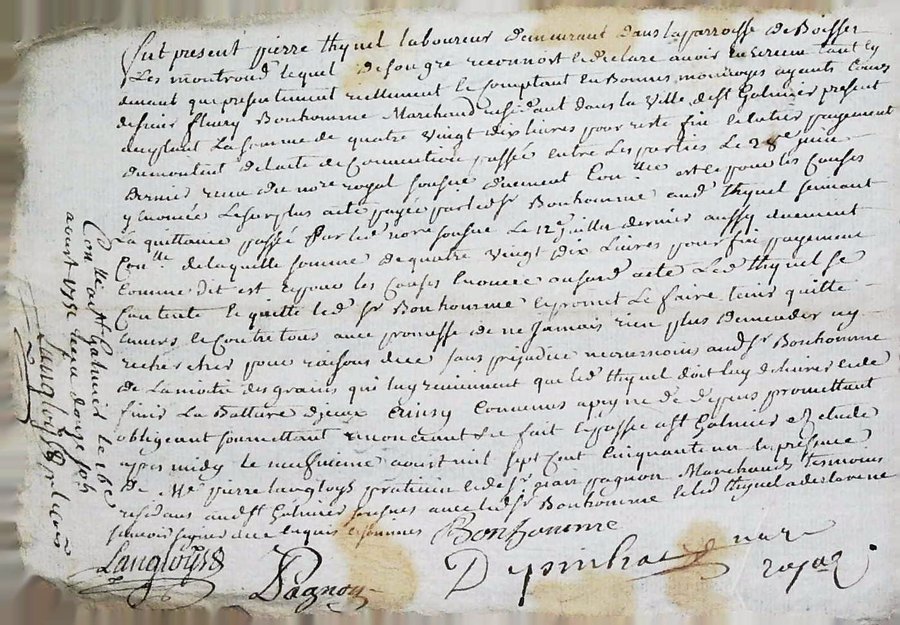 fut present pierre thynel laboureur demeurant dans la parroisse de Boisset
Les montrond lequel de son gre reconnoit et declare avoir eu et receu tant cy
devant que presentement reellement et comptant en Bonnes monnoyes ayants cours
de sieur fleury Bonhomme Marchand residant dans la Ville de st Galmier present
acceptant La somme de quatre vingt dix livres pour reste fin et entier payement
du montant de l'acte de Convention passée entre Les parties Le 28e juin
dernier receu du nore royal sousne duement Con lle est et pour les Causes
y enoncée Le surplus ayté payée par led sr Bonhomme aud thynel suivant
La quittance passée Par led nore sousne Le 12e juillet dernier aussy duement
Con lle de laquelle somme de quatre vingt Dix Livres pour fin payement
Comme dit est et pour les Causes enoncée au susd acte Led thynel se
Contente et quitte led sr Bonhomme et promet Le faire tenir quitte
envers et Contre tous avec promesse de ne jamais rien plus demander ny
rechercher pour raisons de ce sans prejudice neantmoins aud sr Bonhomme
de La moitié des grains qui luy reviennent que led thynel doit luy delivrer
finir La Batture d'jceux Convenus a peyne de depens promettant
obligeant soumettant renoncant &c fait et passée a st Galmier et Etude
apres midy le neufvieme aoust mil sept cent Cinquante un En presence
de Me pierre langloys praticien et de sr jean pagnon Marchand tesmoins
residans aud st Galmier sousnes avec led sr Bonhomme et led thynel a declaré ne
scavoir signer de ce enquis et sommés Bonhomme
Langloys Pagnon Depinhac nore
royal.
Con lle a st Galmier le 16e
aoust 1751 receu douze sols
Langloys